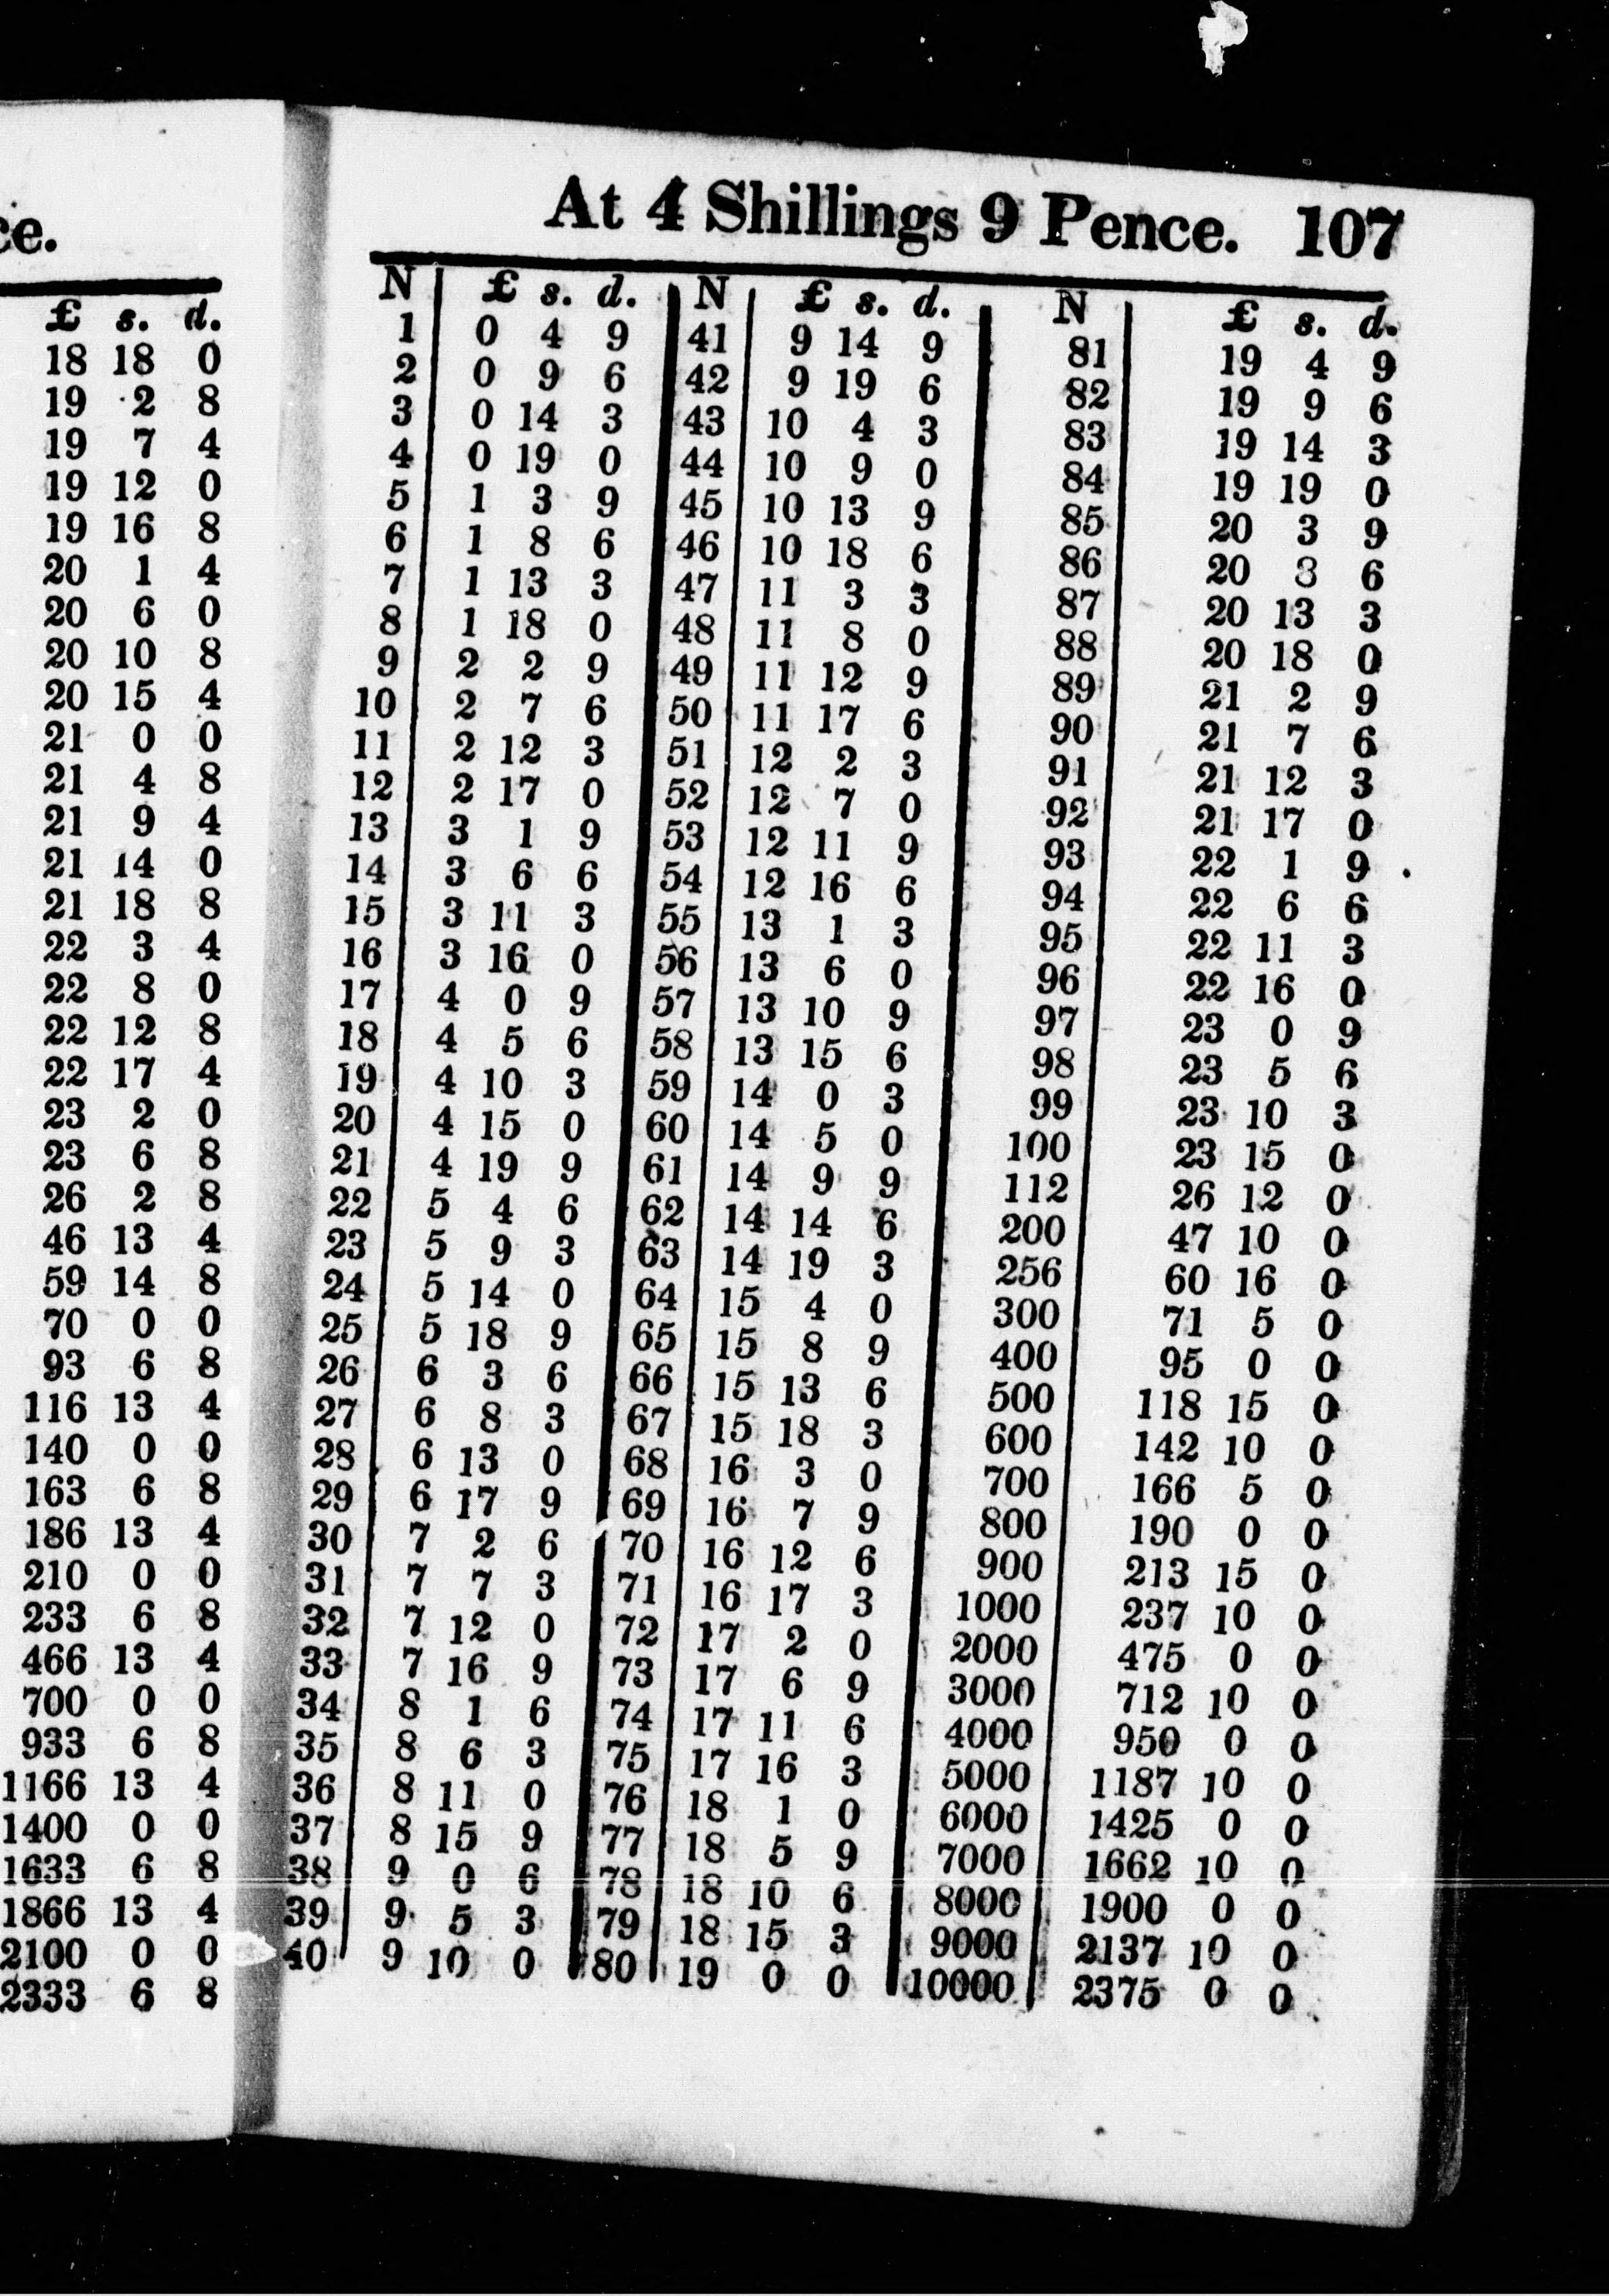 ce.
£ s. d.
18 18 0
19 2 8
19 7 4
19 12 0
19 16 8
20 1 4
20 6 0
20 10 8
20 15 4
21 0 0
21 4 8
21 9 4
21 14 0
21 18 8
22 3 4
22 8 0
22 12 8
22 17 4
23 2 0
23 6 8
26 2 8
46 13 4
59 14 8
70 0 0
93 6 8
116 13 4
140 0 0
163 6 8
186 13 4
210 0 0
233 6 8
466 13 4
700 0 0
933 6 8
1166 13 4
1400 0 0
1633 6 8
1866 13 4
2100 0 0
2333 6 8
At 4 Shillings 9 Pence. 107
N £ s. d. N £ s. d. N £ s. d.
1 0 4 9 41 9 14 9 81 19 4 9
2 0 9 6 42 9 19 6 82 19 9 6
3 0 14 3 43 10 4 3 83 19 14 3
4 0 19 0 44 10 9 0 84 19 19 0
5 1 3 9 45 10 13 9 85 20 3 9
6 1 8 6 46 10 18 6 86 20 8 6
7 1 13 3 47 11 3 3 87 20 13 3
8 1 18 0 48 11 8 0 88 20 18 0
9 2 2 9 49 11 12 9 89 21 2 9
10 2 7 6 50 11 17 6 90 21 7 6
11 2 12 3 51 12 2 3 91 21 12 3
12 2 17 0 52 12 7 0 92 21 17 0
13 3 1 9 53 12 11 9 93 22 1 9
14 3 6 6 54 12 16 6 94 22 6 6
15 3 11 3 55 13 1 3 95 22 11 3
16 3 16 0 56 13 6 0 96 22 16 0
17 4 0 9 57 13 10 9 97 23 0 9
18 4 5 6 58 13 15 6 98 23 5 6
19 4 10 3 59 14 0 3 99 23 10 3
20 4 15 0 60 14 5 0 100 23 15 0
21 4 19 9 61 14 9 9 112 26 12 0
22 5 4 6 62 14 14 6 200 47 10 0
23 5 9 3 63 14 19 3 256 60 16 0
24 5 14 0 64 15 4 0 300 71 5 0
25 5 18 9 65 15 8 9 400 95 0 0
26 6 3 6 66 15 13 6 500 118 15 0
27 6 8 3 67 15 18 3 600 142 10 0
28 6 13 0 68 16 3 0 700 166 5 0
29 6 17 9 69 16 7 9 800 190 0 0
30 7 2 6 70 16 12 6 900 213 15 0
31 7 7 3 71 16 17 3 1000 237 10 0
32 7 12 0 72 17 2 0 2000 475 0 0
33 7 16 9 73 17 6 9 3000 712 10 0
34 8 1 6 74 17 11 6 4000 950 0 0
35 8 6 3 75 17 16 3 5000 1187 10 0
36 8 11 0 76 18 1 0 6000 1425 0 0
37 8 15 9 77 18 5 9 7000 1662 10 0
38 9 0 6 78 18 10 6 8000 1900 0 0
39 9 5 3 79 18 15 3 9000 2137 10 0
40 9 10 0 80 19 0 0 10000 2375 0 0